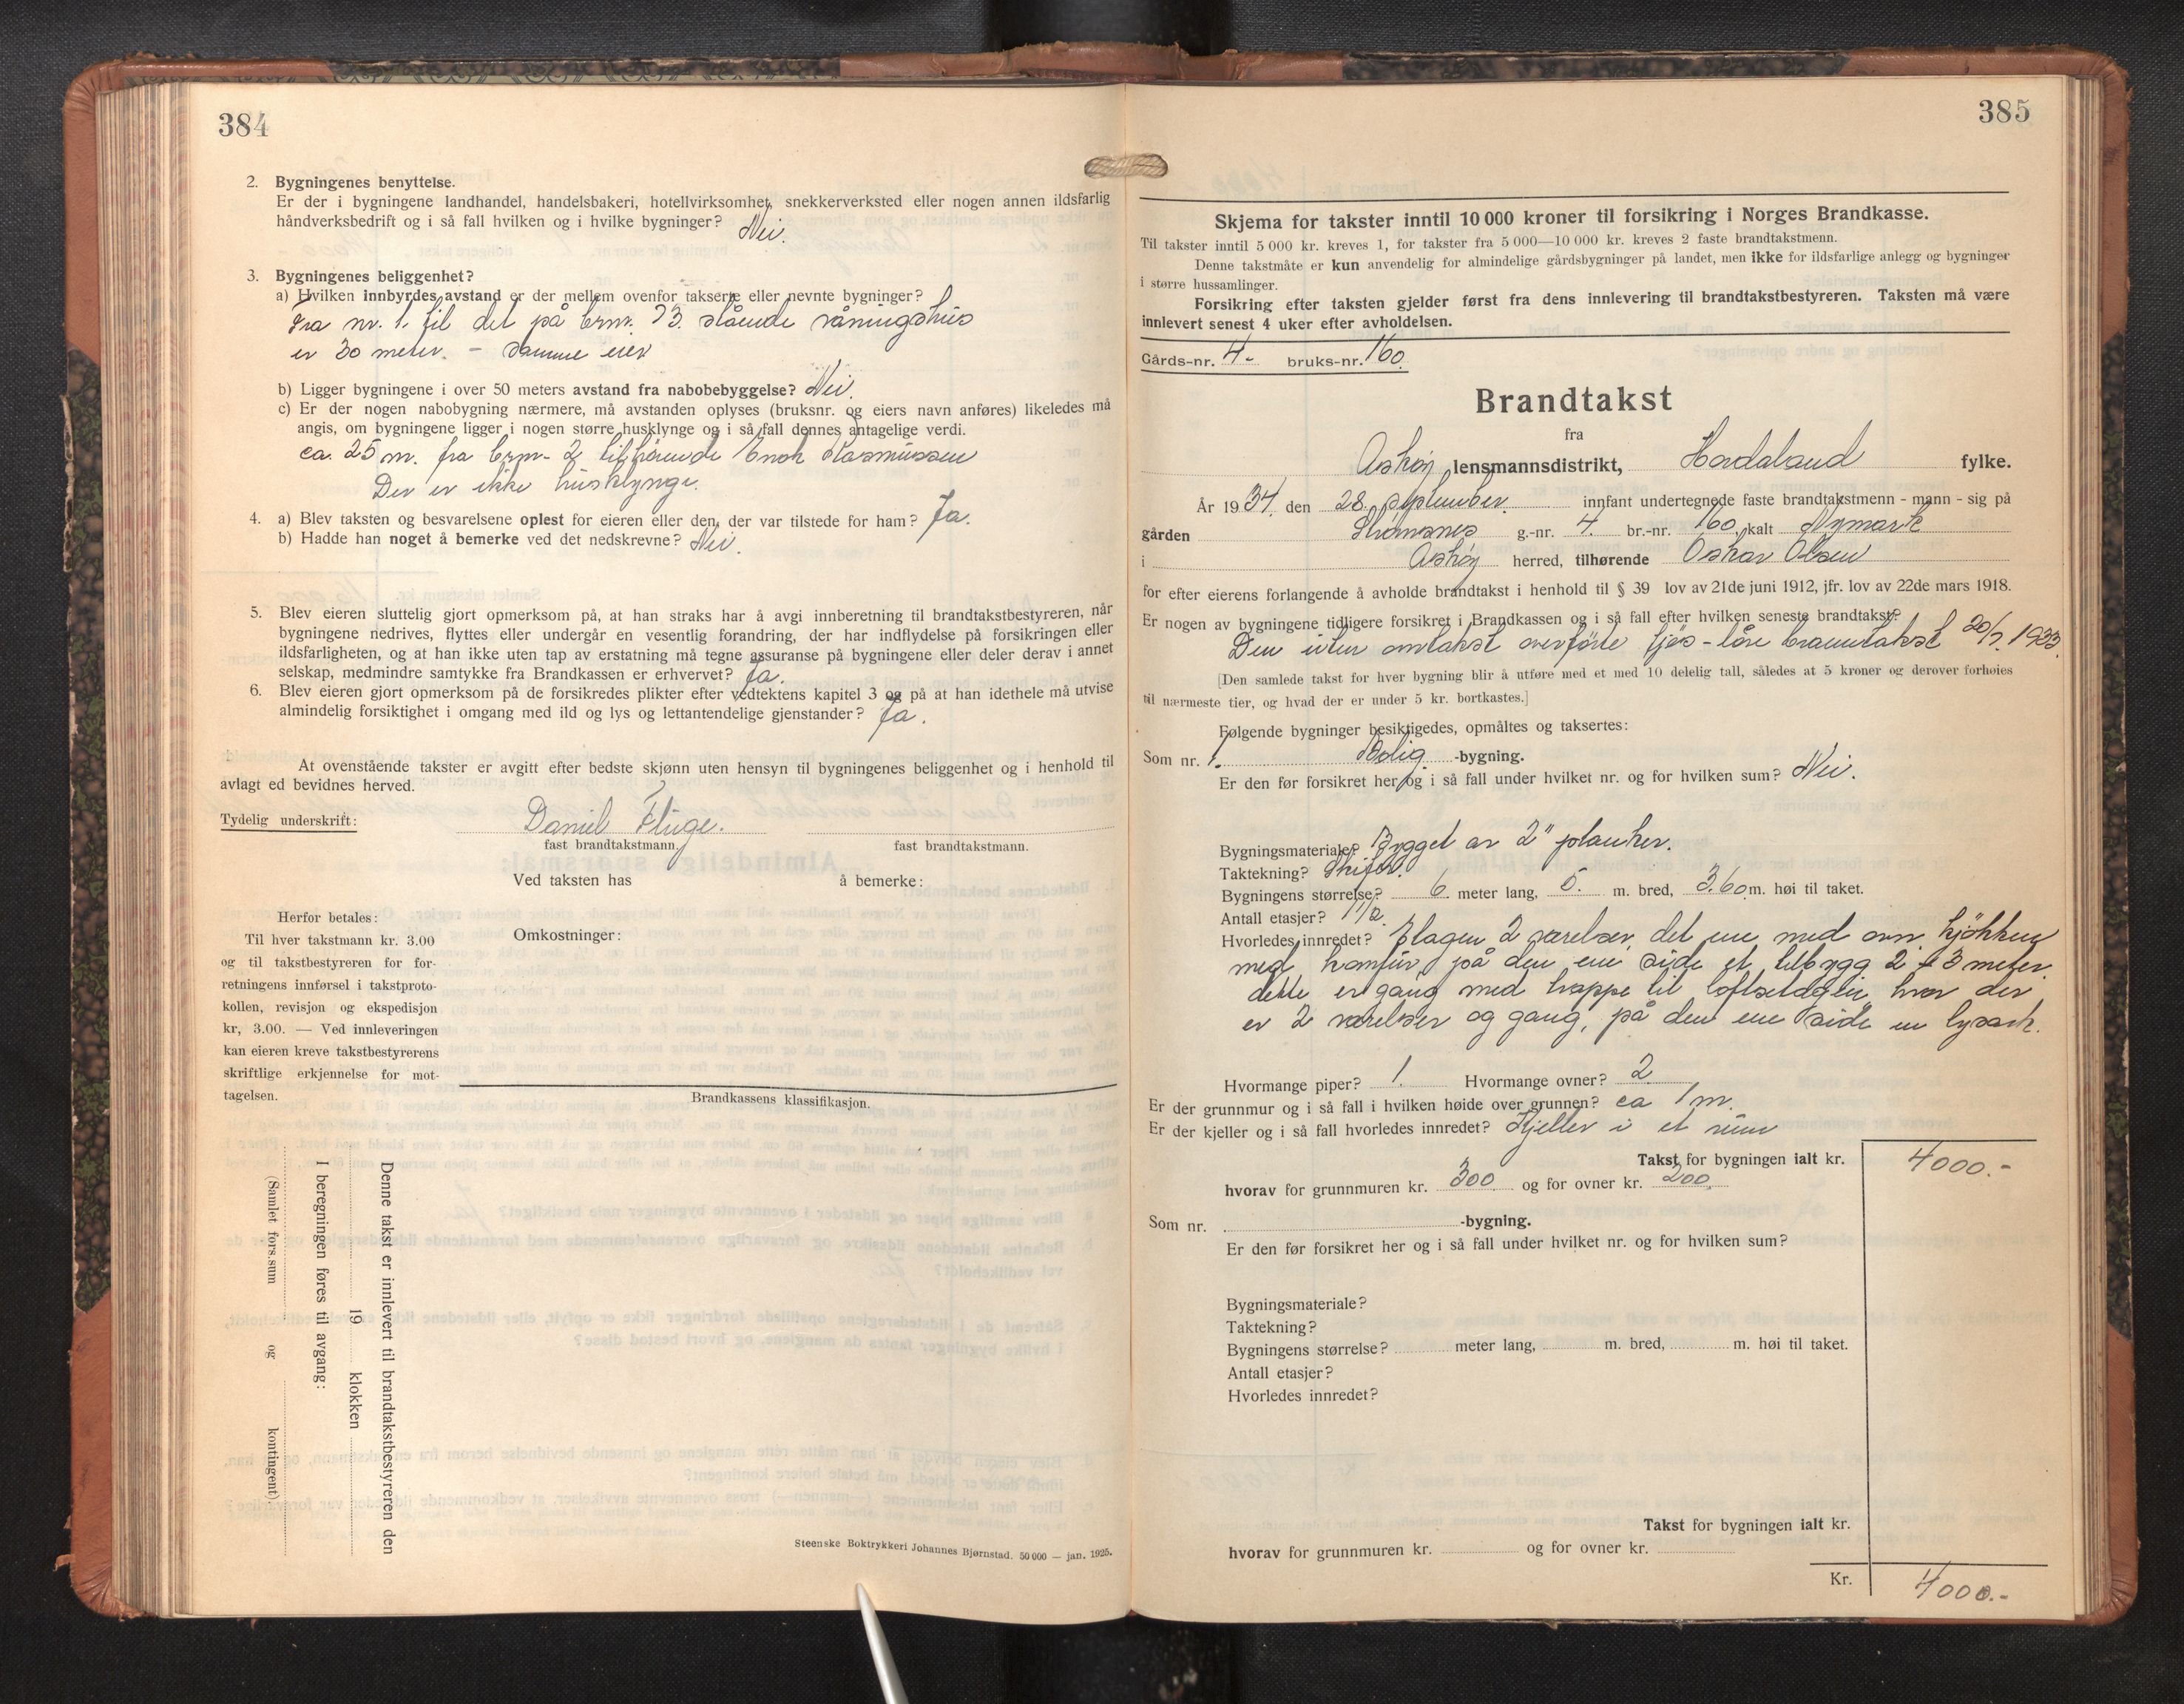 384
2. Bygningenes benyttelse.
Er der i bygningene landhandel, handelsbakeri, hotellvirksomhet, snekkerverksted eller nogen annen ildsfarlig
håndverksbedrift og i så fall hvilken og i hvilke bygninger? Nei.
3. Bygningenes beliggenhet?
a) Hvilken innbyrdes avstand er der mellem ovenfor takserte eller nevnte bygninger?
Fra nr. 1. til det på brnr. 73. stående våningshus
er 30 meter. - samme eier
b) Ligger bygningene i over 50 meters avstand fra nabobebyggelse? Nei.
c) Er der nogen nabobygning nærmere, må avstanden oplyses (bruksnr. og eiers navn anføres) likeledes må
angis, om bygningene ligger i nogen større husklynge og i så fall dennes antagelige verdi.
ca. 25 m. fra brnr. 2 tilhörende Enok Rasmussen
Der er ikke husklynge.
4. a) Blev taksten og besvarelsene oplest for eieren eller den, der var tilstede for ham? Ja.
b) Hadde han noget å bemerke ved det nedskrevne? Nei.
5. Blev eieren sluttelig gjort opmerksom på, at han straks har å avgi innberetning til brandtakstbestyreren, når
bygningene nedrives, flyttes eller undergår en vesentlig forandring, der har indflydelse på forsikringen eller
ildsfarligheten, og at han ikke uten tap av erstatning må tegne assuranse på bygningene eller deler derav i annet
selskap, medmindre samtykke fra Brandkassen er erhvervet? Ja.
6. Blev eieren gjort opmerksom på de forsikredes plikter efter vedtektens kapitel 3 og på at han idethele må utvise
almindelig forsiktighet i omgang med ild og lys og lettantendelige gjenstander? Ja.
At ovenstående takster er avgitt efter bedste skjønn uten hensyn til bygningenes beliggenhet og i henhold til
avlagt ed bevidnes herved.
Tydelig underskrift: Daniel Fluge.
fast brandtakstmann. fast brandtakstmann.
Ved taksten has å bemerke:
Herfor betales:
Til hver takstmann kr. 3.00
og til takstbestyreren for for-
retningens innførsel i takstproto-
kollen, revisjon og ekspedisjon
kr, 3.00. — Ved innleveringen
kan eieren kreve takstbestyrerens
skriftlige erkjennelse for mot-
tagelsen.
Omkostninger:
Brandkassens klassifikasjon.
Denne takst er innlevert til brandtakstbestyreren den
19 klokken
I beregningen føres til avgang:
(Samlet fors.sum og kontingent)
Steenske Boktrykkeri Johannes Bjørnstad. 50 000 — jan. 1925.
385
Skjema for takster inntil 10 000 kroner til forsikring i Norges Brandkasse.
Til takster inntil 5 000 kr. kreves 1, for takster fra 5 000—10 000 kr. kreves 2 faste brandtakstmenn.
Denne takstmåte er kun anvendelig for almindelige gårdsbygninger på landet, men ikke for ildsfarlige anlegg og bygninger
i større hussamlinger.
Forsikring efter taksten gjelder først fra dens innlevering til brandtakstbestyreren. Taksten må være
innlevert senest 4 uker efter avholdelsen.
Gårds-nr. 4- bruks-nr. 160.
Brandtakst
fra
Askøy lensmannsdistrikt, Hordaland fylke.
År 1934. den 28. september innfant undertegnede faste brandtakstmenn - mann - sig på
gården Strömsnes g.-nr. 4. br.-nr. 160. kalt Nymark
i Askøy herred, tilhørende Oskar Olsen
for efter eierens forlangende å avholde brandtakst i henhold til § 39 lov av 21de juni 1912, jfr. lov av 22de mars 1918.
Er nogen av bygningene tidligere forsikret i Brandkassen og i så fall efter hvilken seneste brandtakst?
Den uten omtakst overförte fjøs-löe branntakst 20/7. 1933.
[Den samlede takst for hver bygning blir å utføre med et med 10 delelig tall, således at 5 kroner og derover forhøies
til nærmeste tier, og hvad der er under 5 kr. bortkastes.]
Følgende bygninger besiktigedes, opmåltes og taksertes:
Som nr. 1. Bolig -bygning.
Er den før forsikret her og i så fall under hvilket nr. og for hvilken sum? Nei.
Bygningsmateriale? Bygget av 2" planker.
Taktekning? Skifer.
Bygningens størrelse? 6 meter lang, 5. m. bred, 3.60 m. høi til taket.
Antall etasjer? 1 1/2
Hvorledes innredet? Etagen 2 værelser, det ene med ovn, kjökken
med komfür, på den ene side et tilbygg 2 × 3 meter.
dette er gang med trappe til loftsetagen, hvor der
er 2 værelser og gang, på den ene side en lysark.
Hvormange piper? 1. Hvormange ovner? 2
Er der grunnmur og i så fall i hvilken høide over grunnen? ca 1 m.
Er der kjeller og i så fall hvorledes innredet? Kjeller i et rum
Takst for bygningen ialt kr. 4000.-
hvorav for grunnmuren kr. 300 og for ovner kr. 200.
Som nr. -bygning.
Er den før forsikret her og i så fall under hvilket nr. og for hvilken sum?
Bygningsmateriale?
Taktekning?
Bygningens størrelse? meter lang, m. bred, m. høi til taket.
Antall etasjer?
Hvorledes innredet?
Takst for bygningen ialt kr.
hvorav for grunnmuren kr. og for ovner kr.
Kr. 4000.-